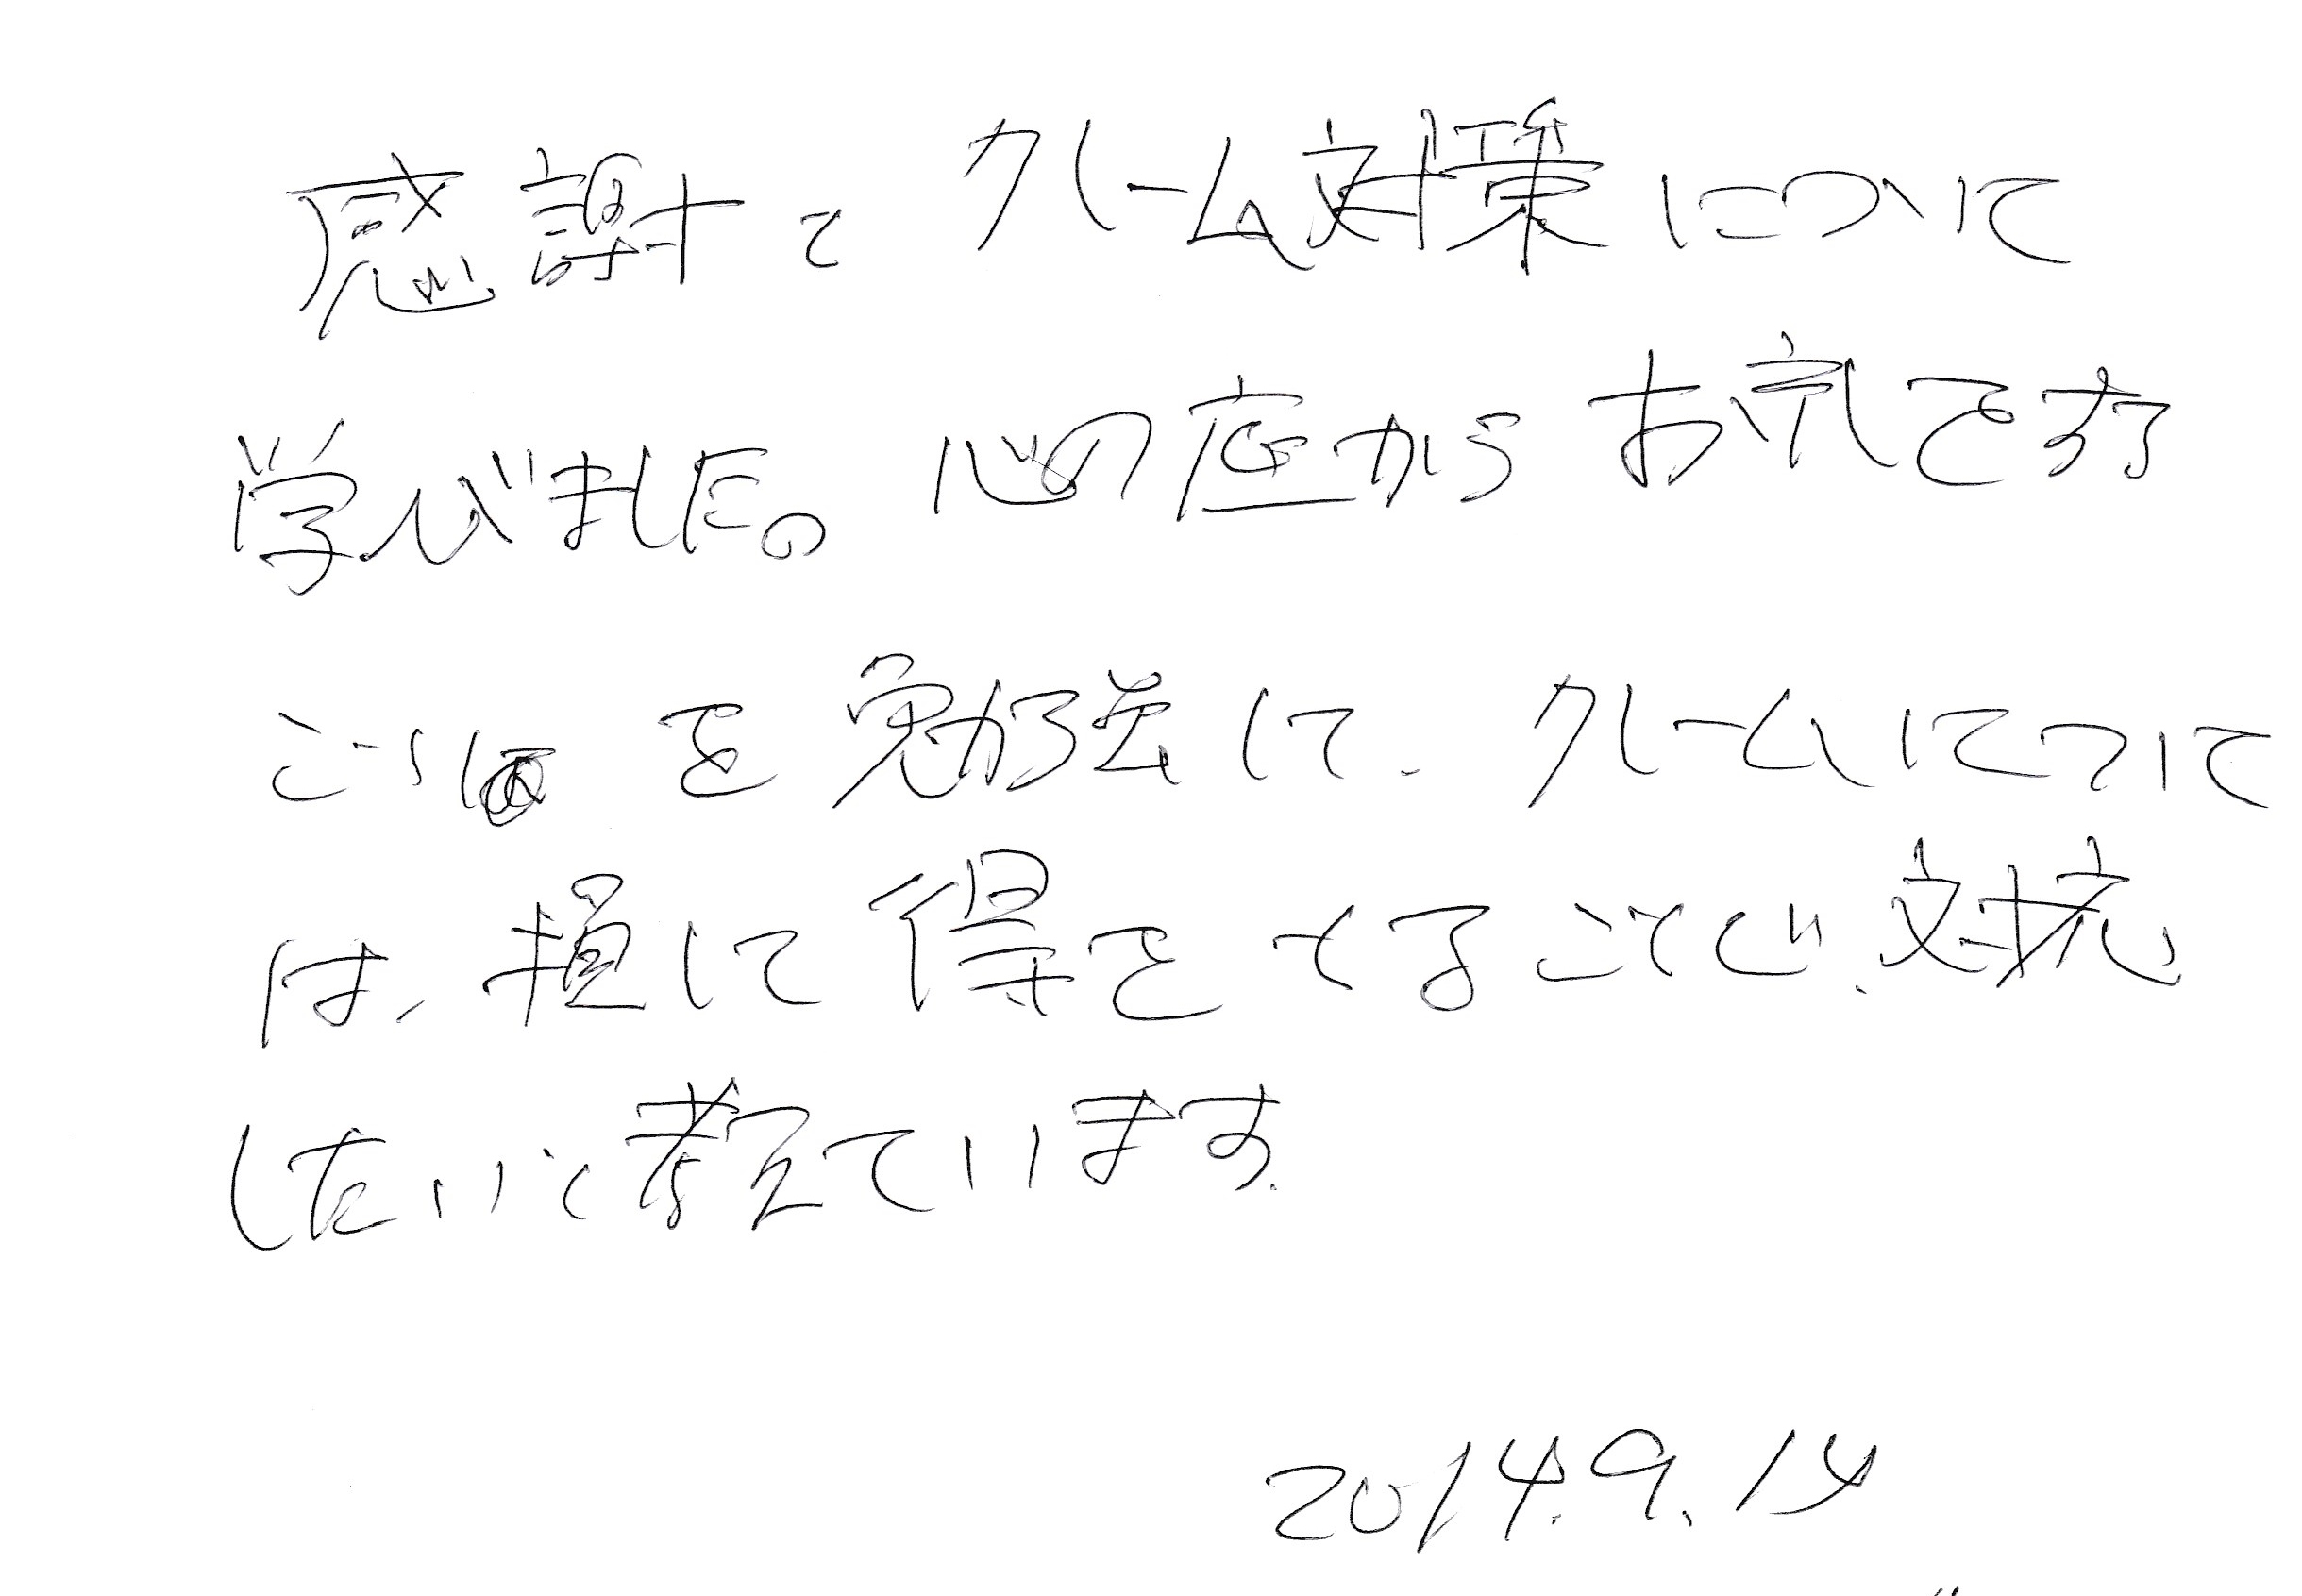 感謝と クレーム対策について
学びました。心の底からお礼です
を勉強して、クレームについて
は、損して得をとることで、対抗
したいと考えています。
2014.9.14